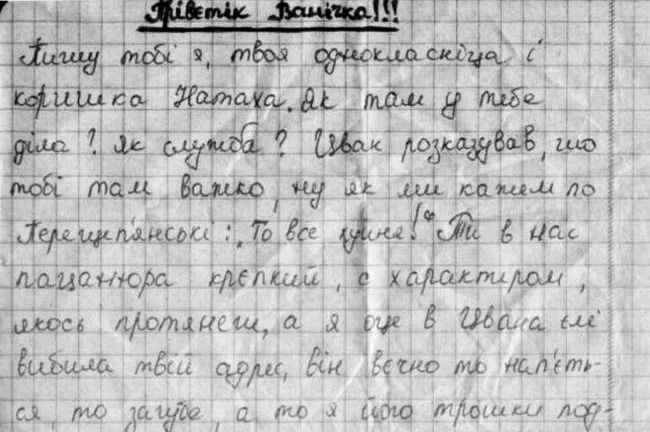 Прівєтік Ванічка!!!
Пишу тобі я, твоя однокласніца і
коришка Натаха. Як там у тебе
діла? Як служба? Цван розказував, шо
тобі там важко, ну як ми кажем по
Перещеп'янські: „То все хуйня!“ Ти в нас
пацанюра крєпкий, с характіром,
якось протянеш, а я оце в Цвана єлє
вибила твій адрес, він вєчно то нап'єть-
ся, то загубе, а то я його трошки под-